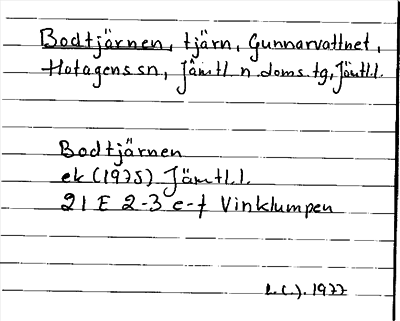 Bodtjärnen, tjärn, Gunnarvattnet,
Hotagens sn, Jämtl. n. doms. tg, Jämtl.l.
Bodtjärnen
ek (1975) Jämtl.l.
21 E 2-3 e-f Vinklumpen
1977